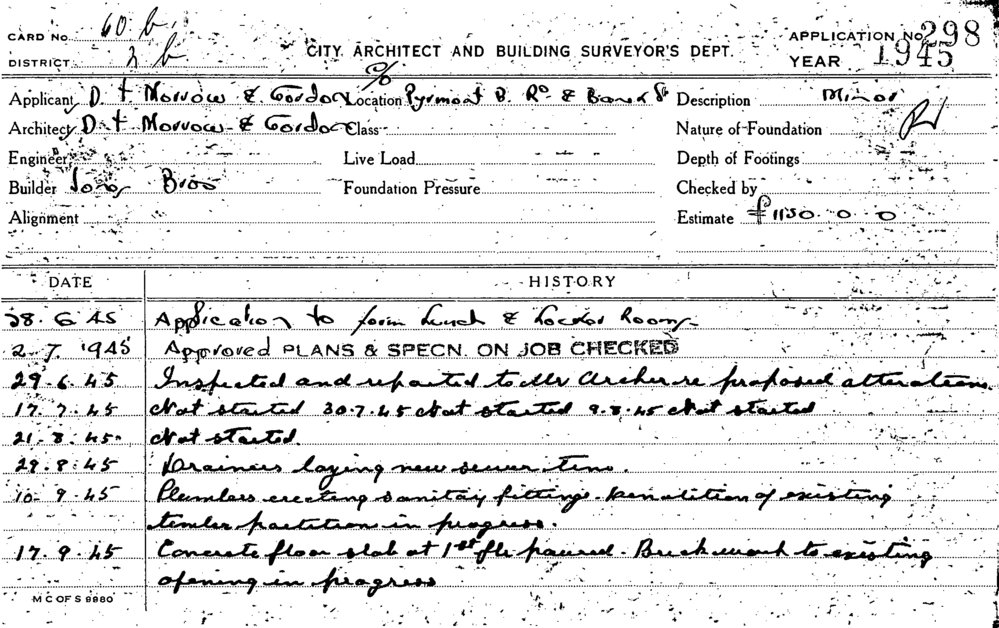 CARD No. 60 b
DISTRICT 2 b
CITY ARCHITECT AND BUILDING SURVEYOR'S DEPT.
APPLICATION No. 298
YEAR 1945
Applicant D. T Morrow & Gordon Location c/o Pyrmont B. Rd & Bank St Description Minor
Architect D. T Morrow & Gordon Class Nature of Foundation
Engineer Live Load Depth of Footings
Builder Bros Foundation Pressure Checked by
Alignment Estimate £1150.0.0
DATE HISTORY
28.6.45 Application to form Lunch & Locker Room
2.7.1945 Approved PLANS & SPECN. ON JOB CHECKED
29.6.45 Inspected and reported to Mr Archer re proposed alterations.
17.7.45 Not started 30.7.45 Not started 9.8.45 Not started
21.8.45. Not started.
29.8.45 Drainers laying new sewer
10.9.45 Plumbers erecting sanitary fittings. Demolition of existing
timber partition in progress.
17.9.45 Concrete floor slab at 1st flr poured. Brickwork to existing
opening in progress
M C OF S 9880